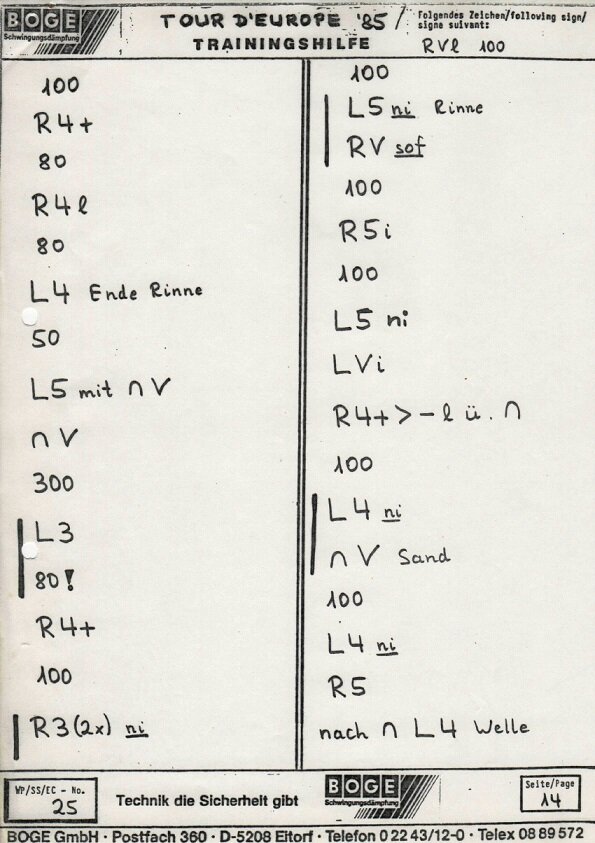 BOGE
Schwingungsdämpfung
TOUR D'EUROPE '85
TRAININGSHILFE
Folgendes Zeichen/following sign/
signe suivant:
RVl 100
100
R4+
80
R4l
80
L4 Ende Rinne
50
L5 mit ∩ V
∩ V
300
L3
80!
R4+
100
R3(2x) ni
100
L5 ni Rinne
RV sof
100
R5i
100
L5 ni
LVi
R4+>-l ü. ∩
100
L4 ni
∩ V Sand
100
L4 ni
R5
nach ∩ L4 Welle
WP/SS/EC - No.
25
Technik die Sicherheit gibt
BOGE
Schwingungsdämpfung
Seite/Page
14
BOGE GmbH · Postfach 360 · D-5208 Eitorf · Telefon 0 22 43/12-0 · Telex 08 89 572